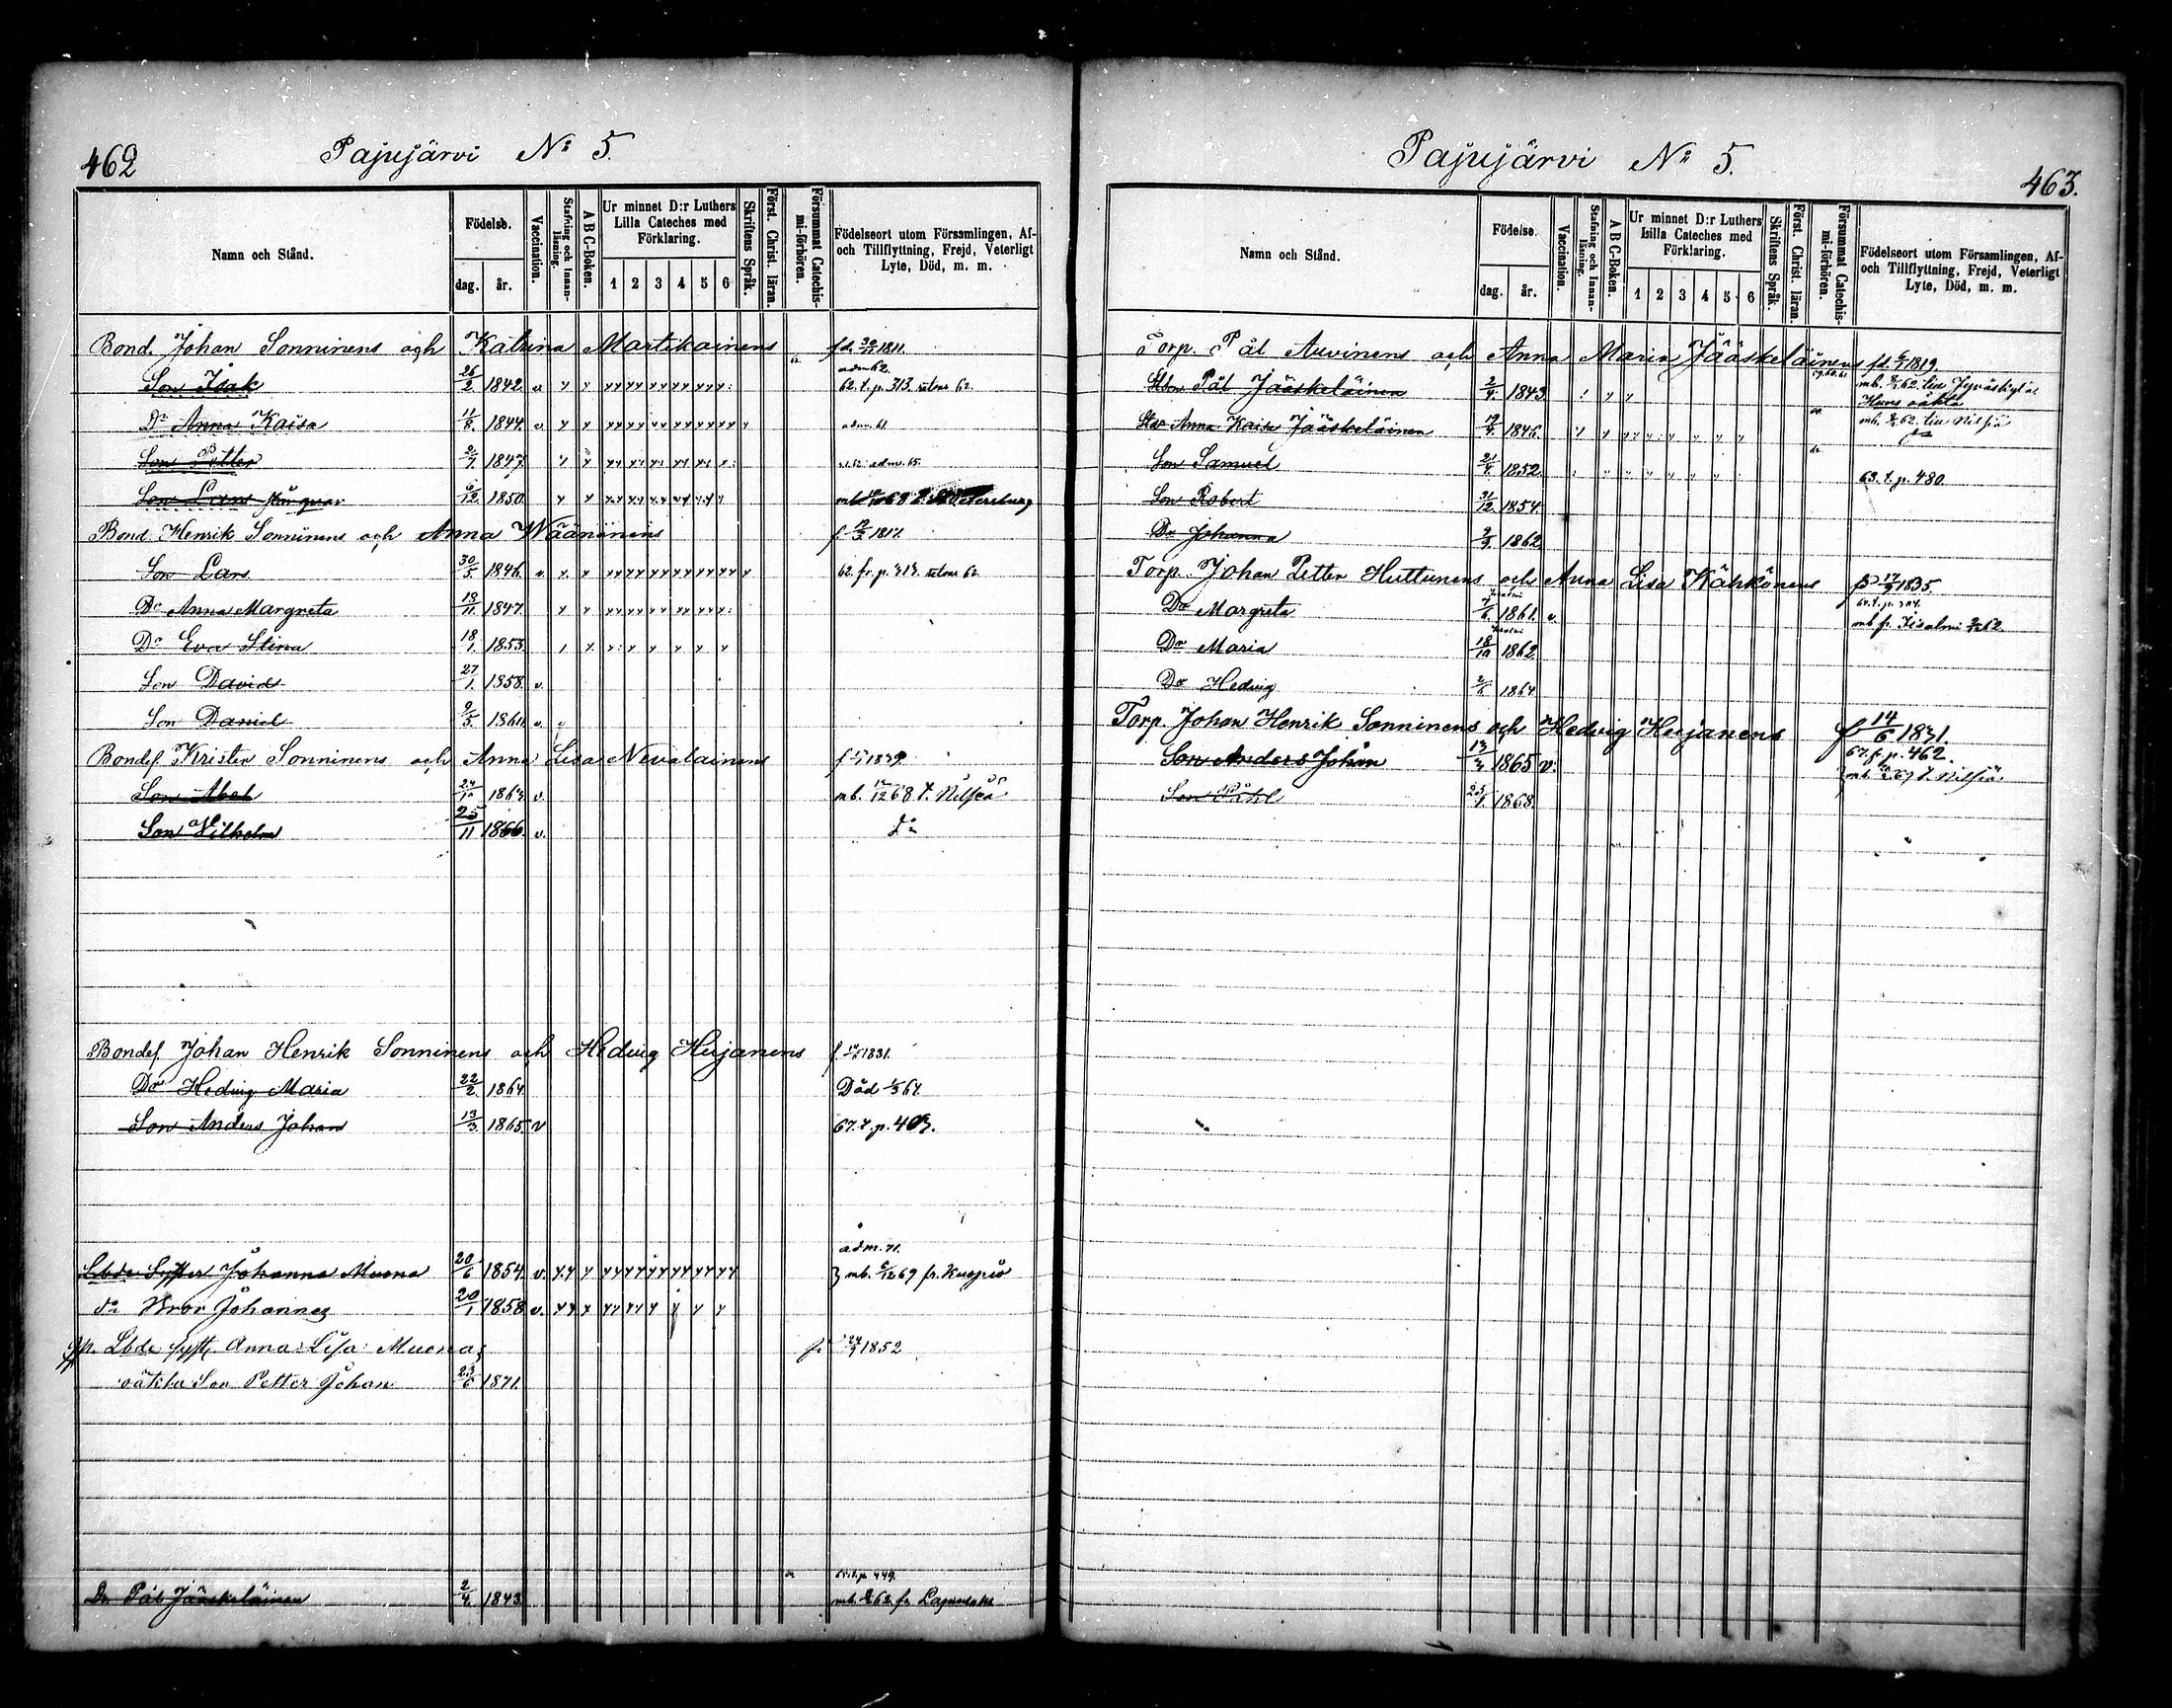 462
Pajujärvi No 5.
Namn och Stånd.
Födelse.
dag.
år.
Vaccination.
Stafning och Innanläsning.
A B C-Boken.
Ur minnet D:r Luthers Lilla Cateches med Förklaring.
1 2 3 4 5 6
Skriftens Språk.
Först. Christ. läran.
Försummat Catechismi-förhören.
Födelseort utom Församlingen, Af- och Tillflyttning, Frejd, Veterligt Lyte, Död, m. m.
Bond. Johan Sonninens och Katrina Martikainens fd. 1811.
adm 62.
Son Isak 26/2 1842. 62. t. p. 313.
Dr Anna Kaisa 11/8. 1844. v adm. 61
Son Petter 1847. adm. 65.
Son Lars 6/12. 1850.
Bond. Henrik Sonninens och Anna Wäänänens f. 1817.
Son Lars 30/5. 1846. v. 62. fr. p. 313.
Dr Anna Margreta 13/11. 1847.
Dr Eva Stina 18/1. 1853.
Son David 27/1. 1858. v.
Son Daniel 9/5. 1861. v.
Bondes. Krister Sonninens och Anna Lisa Nevalainens f 1839.
Son Abel 24/10 1863. v. mb. 12/12 68 t. Nilsiä
Son Wilhelm 25/11 1866. v. do
Bondes. Johan Henrik Sonninens och Hedvig Heijanens f. 1831.
Dr Hedvig Maria 22/2. 1864. Död 64.
Son Anders Johan 13/3. 1865. v 67. t. p. 463.
adm. 71.
Lbde Syster Johanna Muona 20/6 1854. v. mb. 69 fr. Kuopio
do Bror Johannes 20/1 1858 v.
Lbde syst. Anna Lisa Muonas f. 1852
oäkta Son Petter Johan 23/6 1871.
Dr Pål Jääskeläinen 2/4. 1843. mb. 62 fr.
Pajujärvi No 5.
463.
Namn och Stånd.
Födelse.
dag.
år.
Vaccination.
Stafning och Innanläsning.
A B C-Boken.
Ur minnet D:r Luthers Lilla Cateches med Förklaring.
1 2 3 4 5 6
Skriftens Språk.
Först. Christ. läran.
Försummat Catechismi-förhören.
Födelseort utom Församlingen, Af- och Tillflyttning, Frejd, Veterligt Lyte, Död, m. m.
Torp. Pål Auvinens och Anna Maria Jääskeläinens fd. 1819.
Pål Jääskeläinen 2/4. 1843. mb. 62.
Anna Kaisa Jääskeläinen 1846. mb. 62. Nilsiä
Son Samuel 21/4. 1852. 63. t. p. 480.
Son Robert 31/12. 1854.
Dr Johanna 2/9. 1862.
Torp. Johan Petter Huttunens och Anna Lisa Kähkönens 1835.
Dr Margreta 1861. v. mb fr. Iisalmi 62.
Dr Maria 18/10 1862.
Dr Hedvig 1864.
Torp. Johan Henrik Sonninens och Hedvig Heijanens f 14/6 1831.
Son Anders Johan 13/3 1865 v. 67. f. p. 462.
mb. 69 t. Nilsiä
Son Påhl 25/1. 1868.